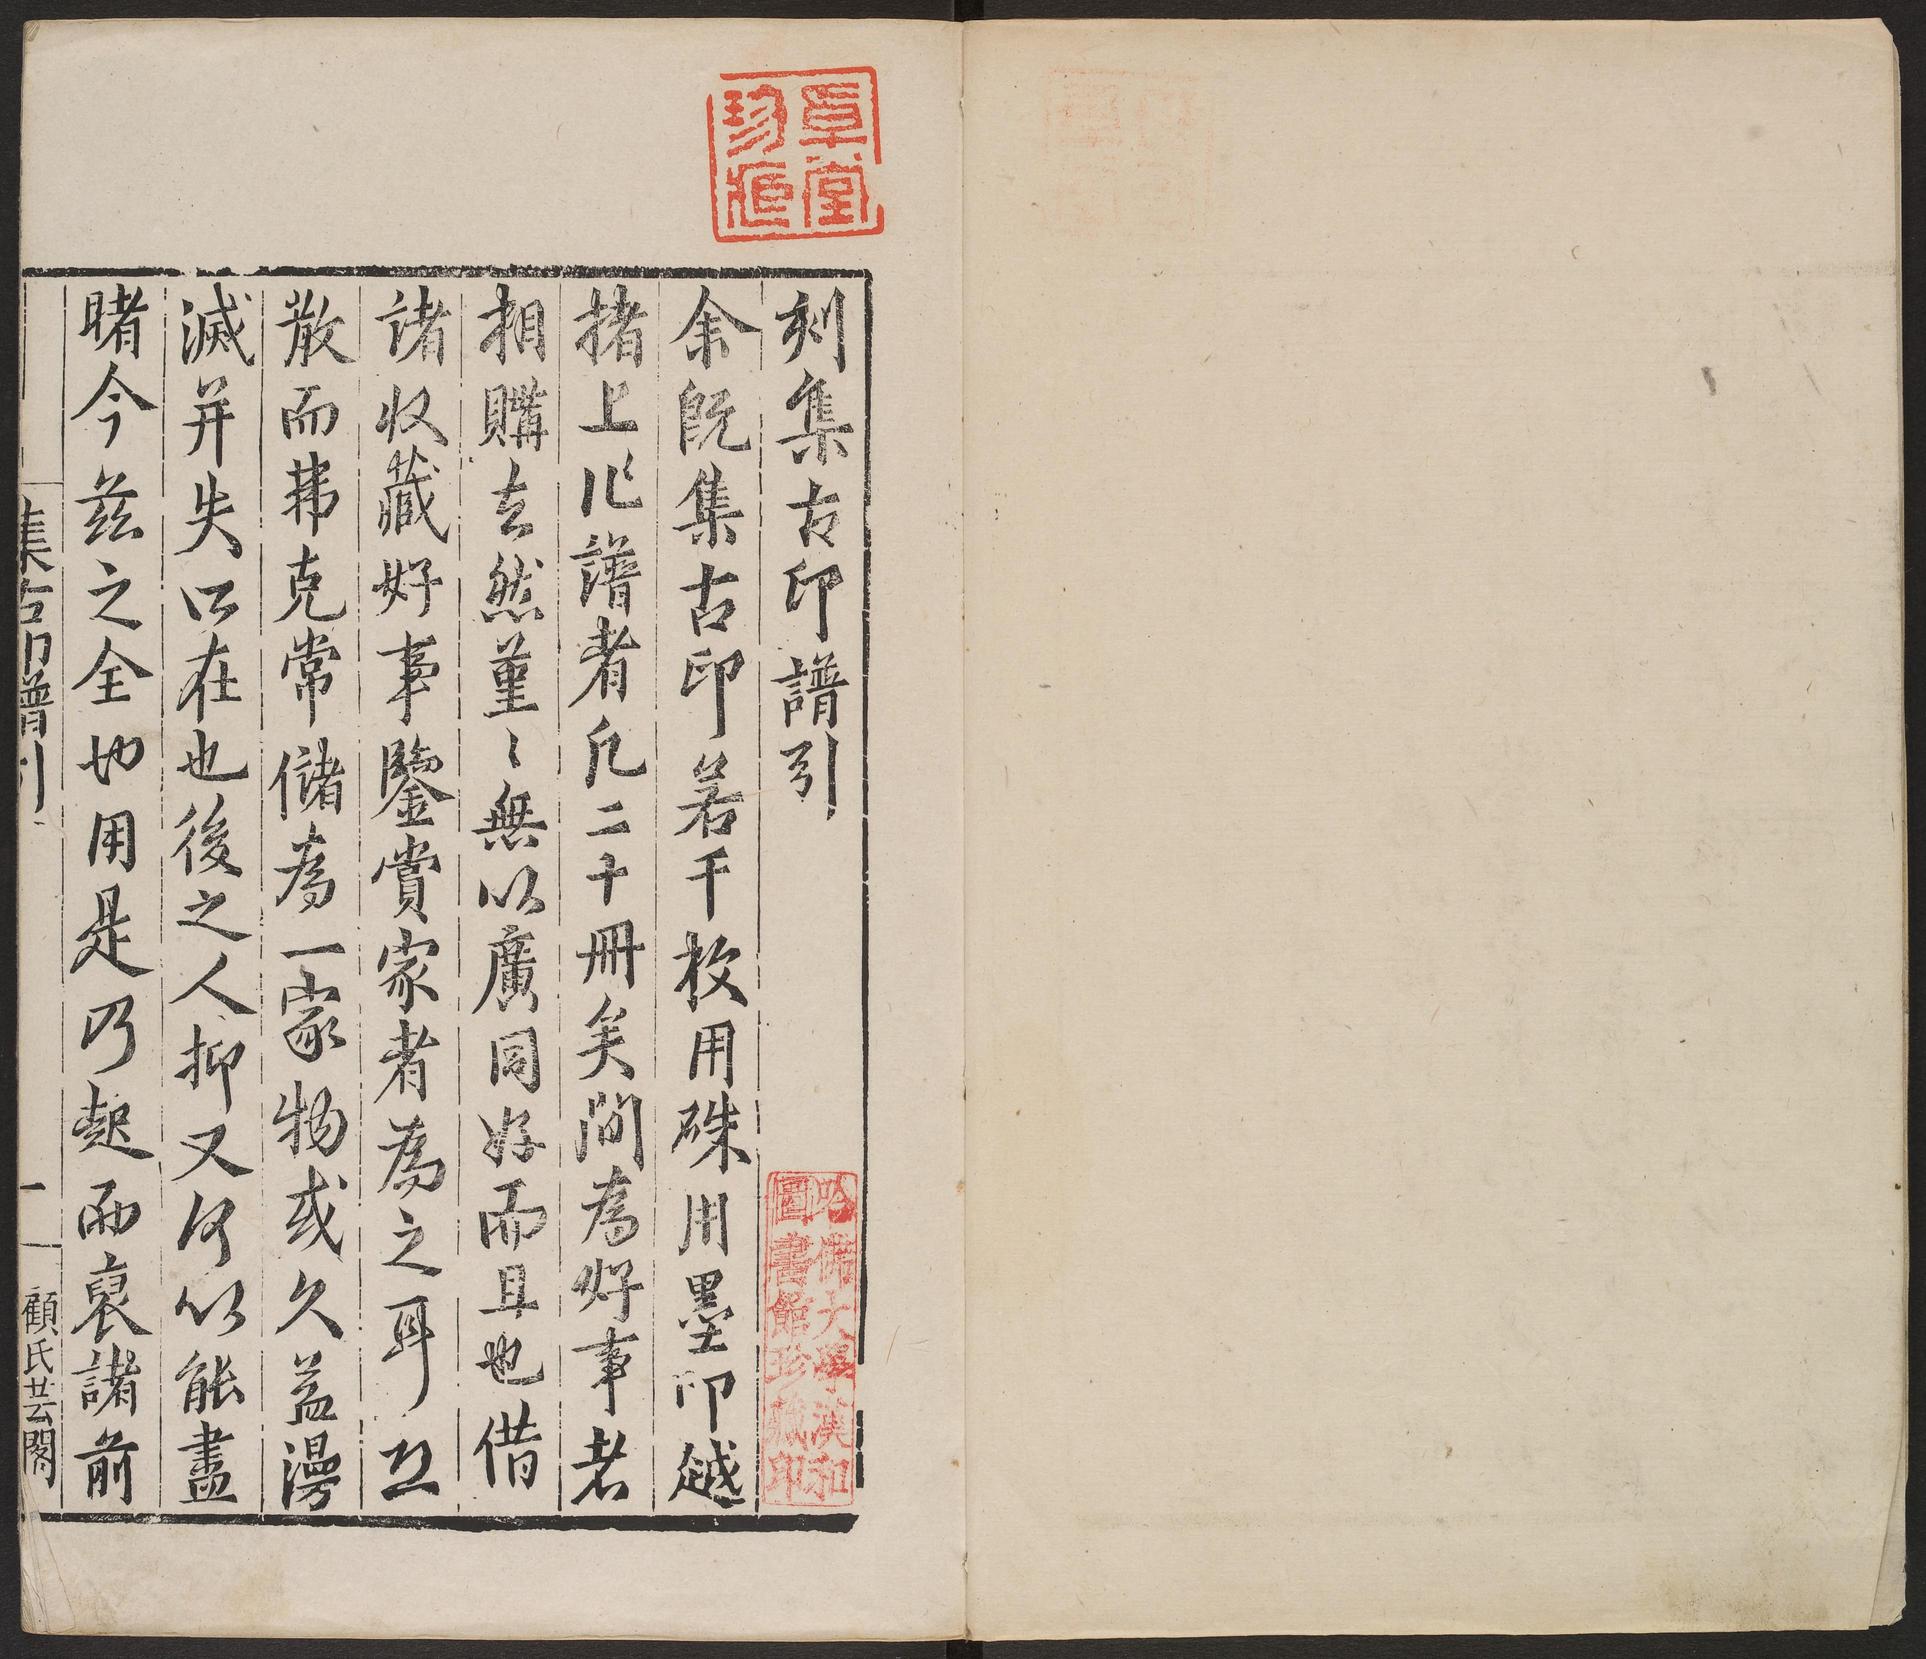 刻集古印譜引
余既集古印若干枚用硃用墨印越
楮上作譜者凡二十冊矣間為好事者
相購去然堇〻無以廣同好而且也借
諸收藏好事鑒賞家者為之耳
散而弗克常儲為一家物或久益漫
滅并失所在也後之人抑又何以能盡
睹今茲之全也用是乃趣而裒諸前
集古印譜引
一
顧氏芸閣
草堂
珍藏
哈佛大學漢和
圖書館珍藏印